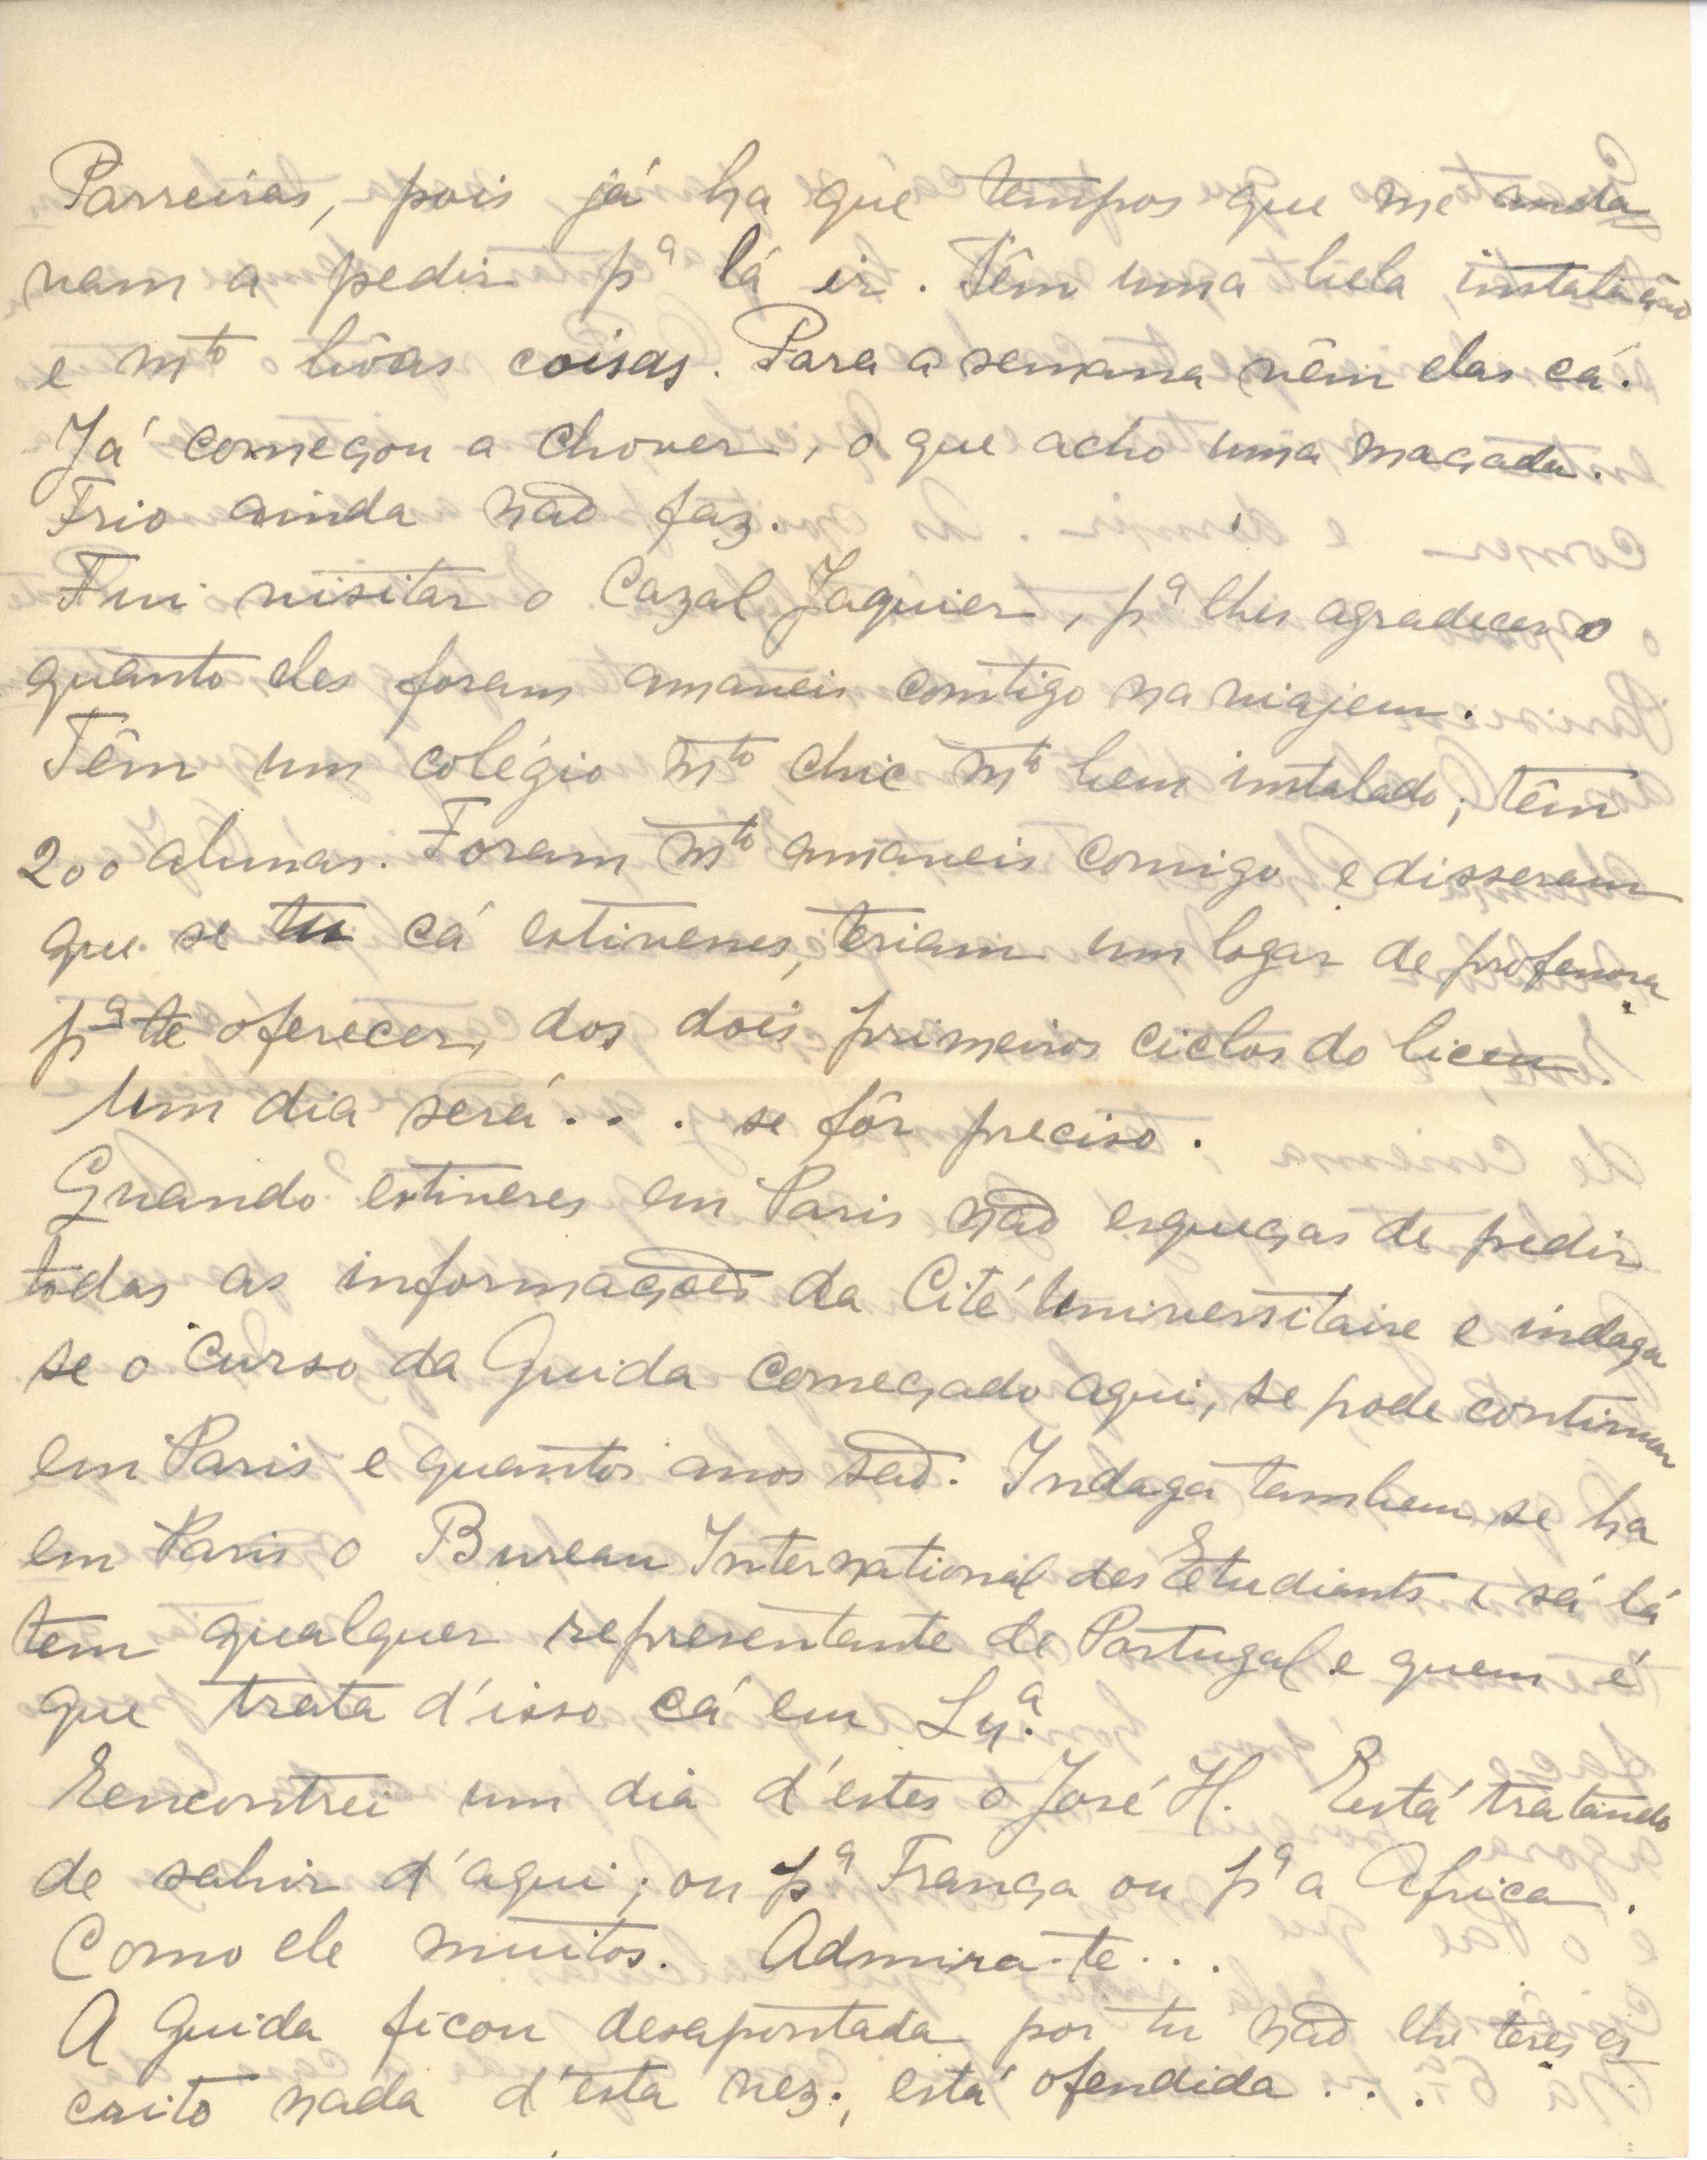 Parreiras, pois já ha que tempos que me anda
vam a pedir pª lá ir. Têm uma bela instalação
e mto bôas coisas. Para a semana vêm elas cá.
Já começou a chover, o que acho uma maçada.
Frio ainda não faz.
Fui visitar o Cazal Jaquier, pª lhes agradecer o
quanto eles foram amaveis comtigo na viajem.
Têm um colégio mto chic mto bem instalado; têm
200 alunas. Foram mto amaveis comigo e disseram
que se tu cá estivesses, teriam um logar de professora
pª te oferecer, dos dois primeiros ciclos do liceu.
Um dia será... se fôr preciso.
Quando estiveres em Paris não esqueças de pedir
todas as informações da Cité Universitaire e indaga
se o curso da Guida começado aqui, se pode continuar
em Paris e quantos anos são. Indaga tambem se ha
em Paris o Bureau International des Etudiants e sá lá
tem qualquer representante de Portugal e quem é
que trata d'isso cá em Lxª.
Eencontrei um dia d'estes o José H. Está tratando
de sahir d'aqui; ou pª França ou pª a Africa.
Como ele muitos. Admira-te...
A Guida ficou desapontada por tu não lhe teres es
crito nada d'esta vez; está ofendida...